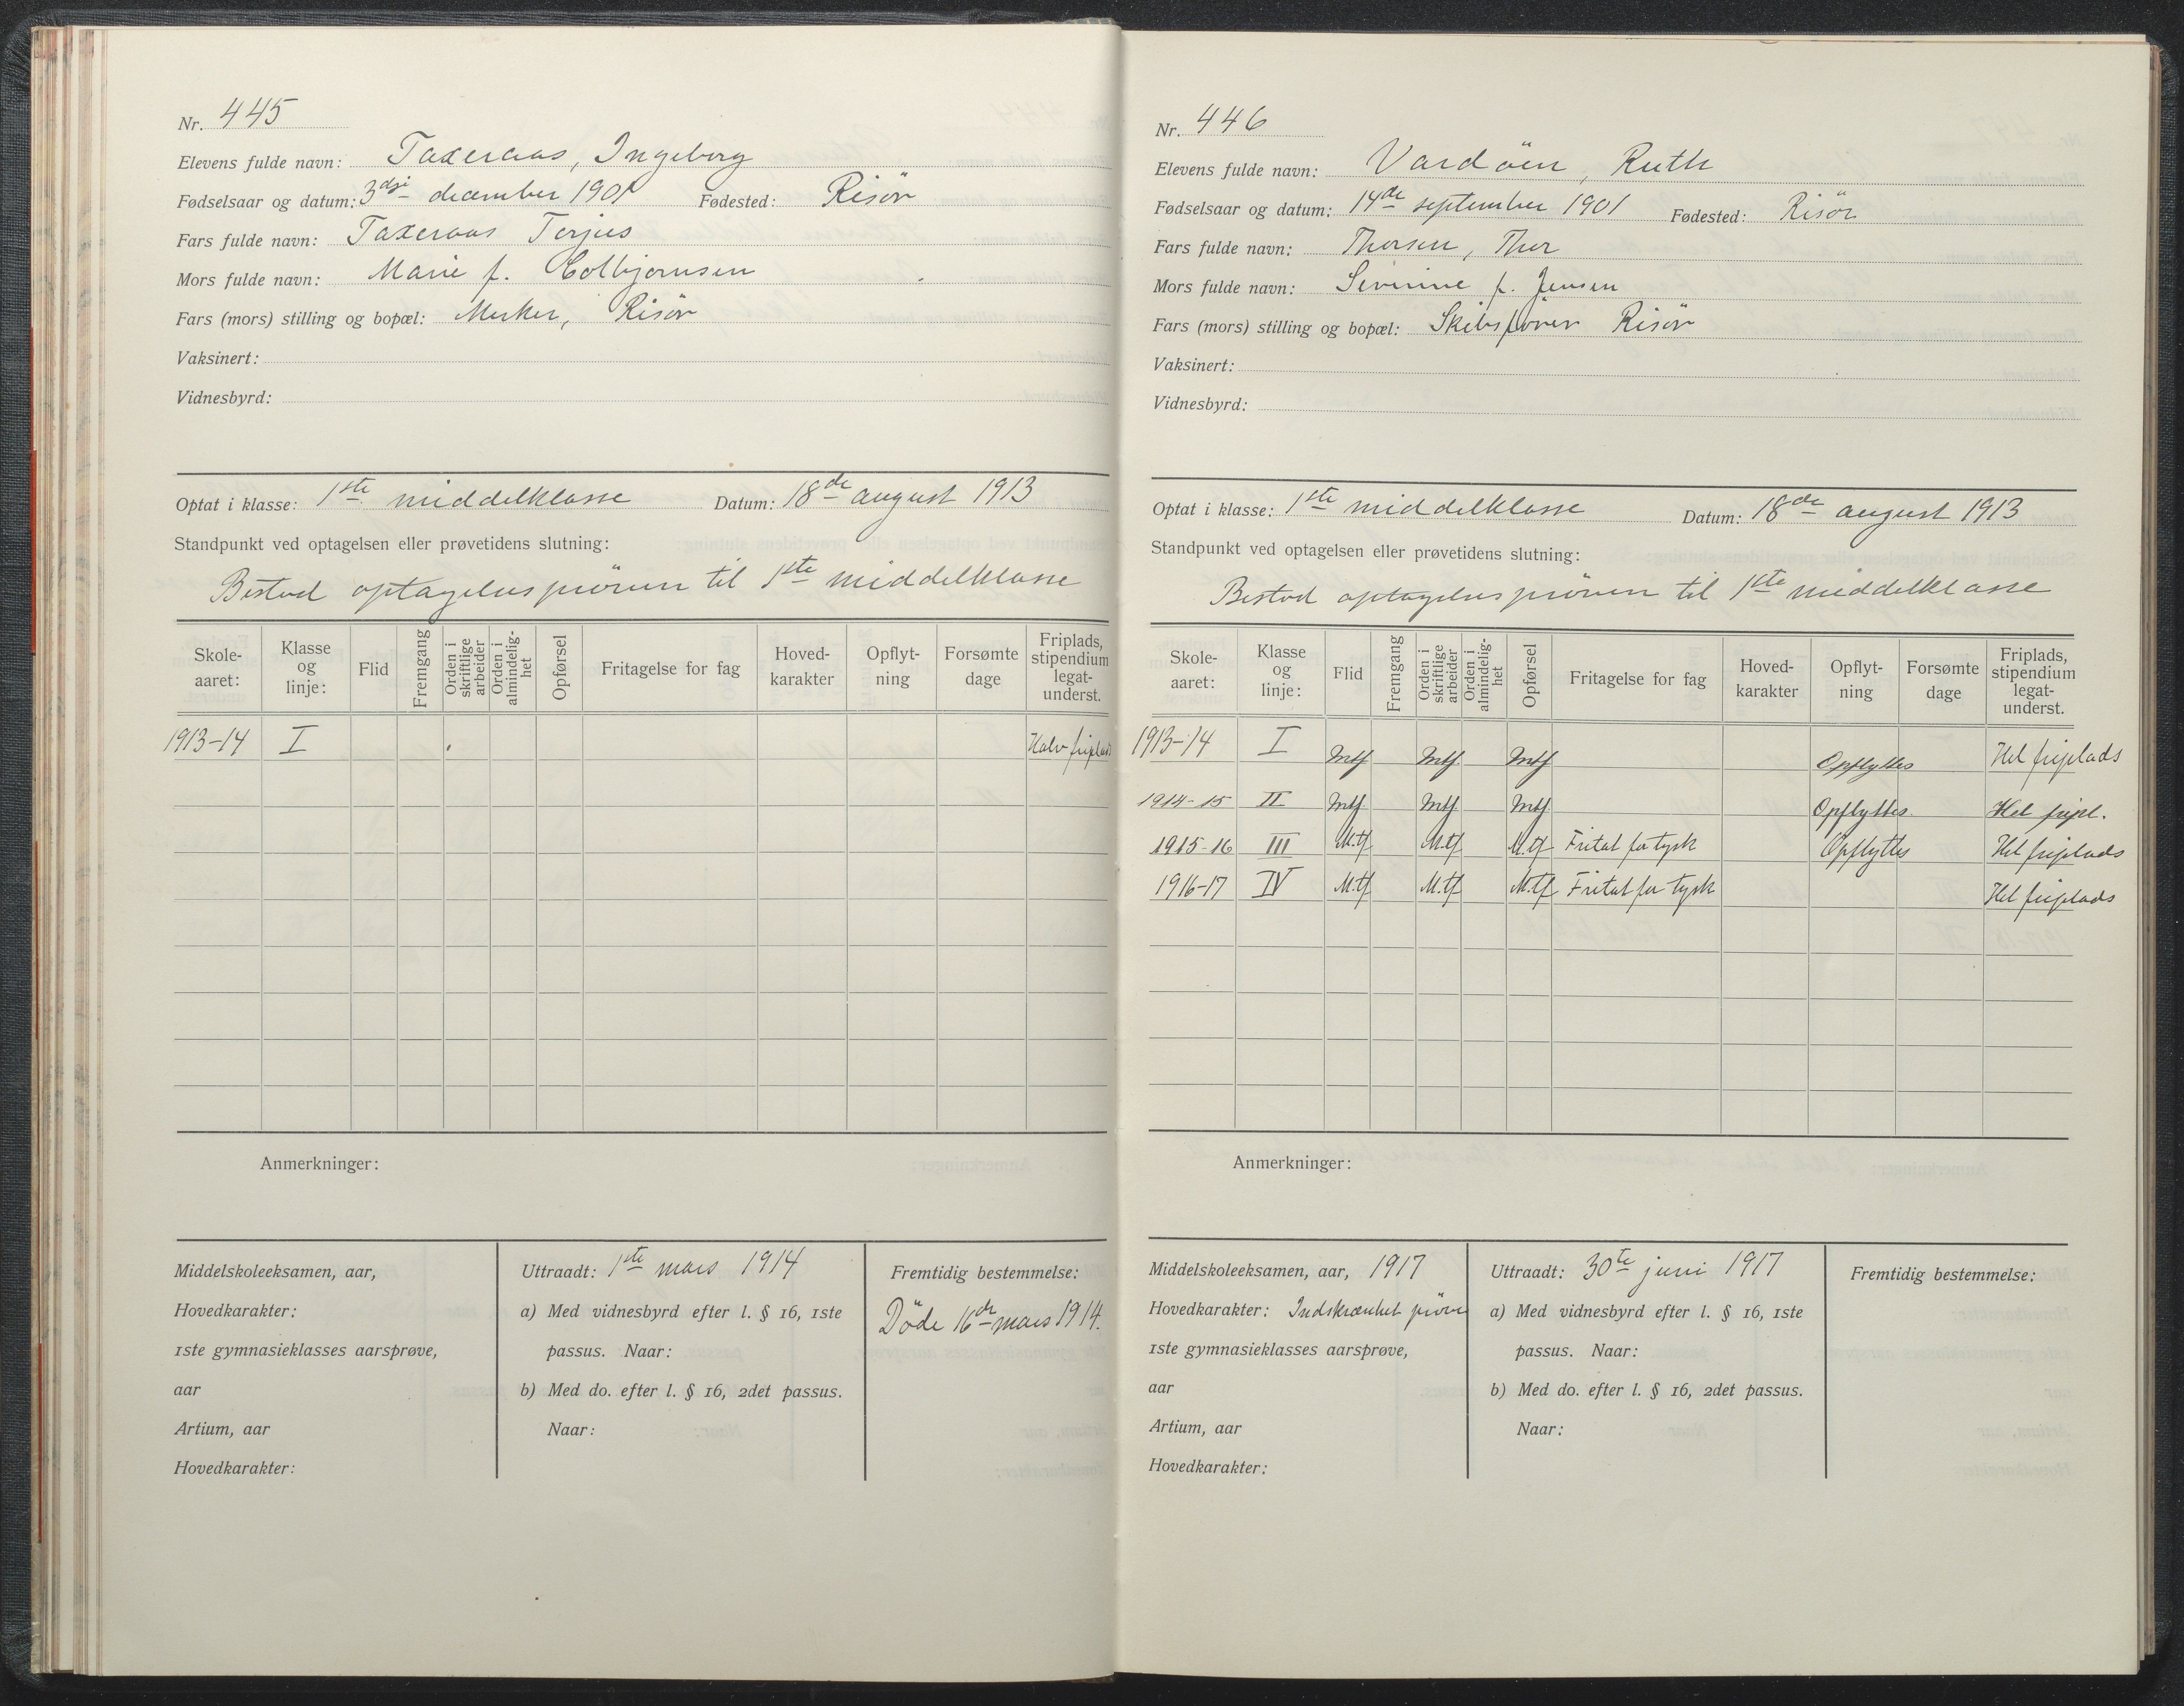 Nr. 445
Elevens fulde navn: Taxeraas, Ingeborg
Fødselsaar og datum: 3dje december 1901 Fødested: Risör
Fars fulde navn: Taxeraas Torjus
Mors fulde navn: Marie f. Colbjørnsen
Fars (mors) stilling og bopæl: Merker, Risör
Vaksinert:
Vidnesbyrd:
Optat i klasse: 1ste middelklasse Datum: 18de august 1913
Standpunkt ved optagelsen eller prøvetidens slutning:
Bestod optagelsespröven til 1ste middelklasse
Skole-aaret: Klasse og linje: Flid Fremgang Orden i skriftlige arbeider Orden i almindelig-het Opførsel Fritagelse for fag Hoved-karakter Opflyt-ning Forsømte dage Friplads, stipendium legat-underst.
1913-14 I Halv friplads
Anmerkninger:
Middelskoleeksamen, aar,
Hovedkarakter:
1ste gymnasieklasses aarsprøve,
aar
Artium, aar
Hovedkarakter:
Uttraadt: 1ste mars 1914
a) Med vidnesbyrd efter l. § 16, 1ste
passus. Naar:
b) Med do. efter l. § 16, 2det passus.
Naar:
Fremtidig bestemmelse:
Döde 16de mars 1914.
Nr. 446
Elevens fulde navn: Vardöen, Ruth
Fødselsaar og datum: 14de september 1901 Fødested: Risör
Fars fulde navn: Thorsen, Thor
Mors fulde navn: Sivirine f. Jensen
Fars (mors) stilling og bopæl: Skibsförer Risör
Vaksinert:
Vidnesbyrd:
Optat i klasse: 1ste middelklasse Datum: 18de august 1913
Standpunkt ved optagelsen eller prøvetidens slutning:
Bestod optagelsespröven til 1ste middelklasse
Skole-aaret: Klasse og linje: Flid Fremgang Orden i skriftlige arbeider Orden i almindelig-het Opførsel Fritagelse for fag Hoved-karakter Opflyt-ning Forsømte dage Friplads, stipendium legat-underst.
1913-14 I Mtf Mtf. Mtf Opflyttes Hel friplads
1914-15 II Mtf. Mtf. Mtf. Opflyttes. Hel fripl.
1915-16 III M.tf M.tf M.tf Fritat for tysk Opflyttes Hel friplads
1916-17 IV M.tf M.tf M.tf Fritat for tysk Hel friplads
Anmerkninger:
Middelskoleeksamen, aar, 1917
Hovedkarakter: Indskrænket pröve
1ste gymnasieklasses aarsprøve,
aar
Artium, aar
Hovedkarakter:
Uttraadt: 30te juni 1917
a) Med vidnesbyrd efter l. § 16, 1ste
passus. Naar:
b) Med do. efter l. § 16, 2det passus.
Naar:
Fremtidig bestemmelse: